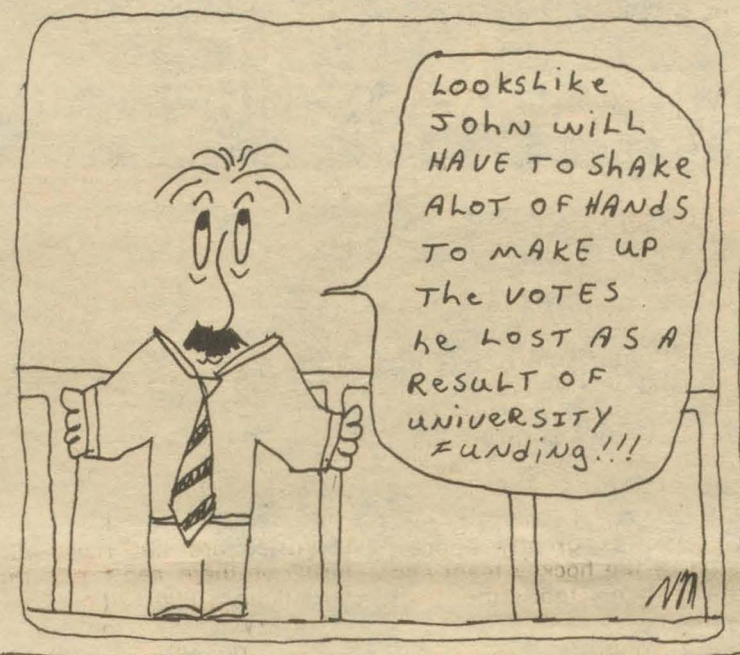 LooksLike
John will
HAVE TO ShAke
ALOT OF HANdS
TO MAKE UP
The VOTES
he LOST AS A
ResuLT OF
UNiVeRSITY
FUNdiNg!!!
NM